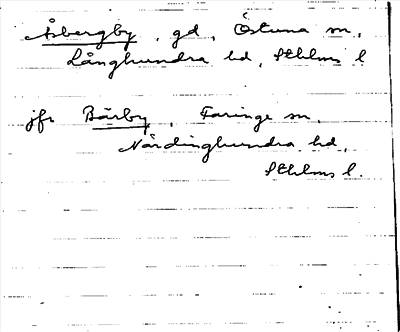 Åsbergby, gd, Östuna sn,
Långhundra hd, Sthlms l
jfr Bärby, Faringe sn,
Närdinghundra hd,
Sthlms l.